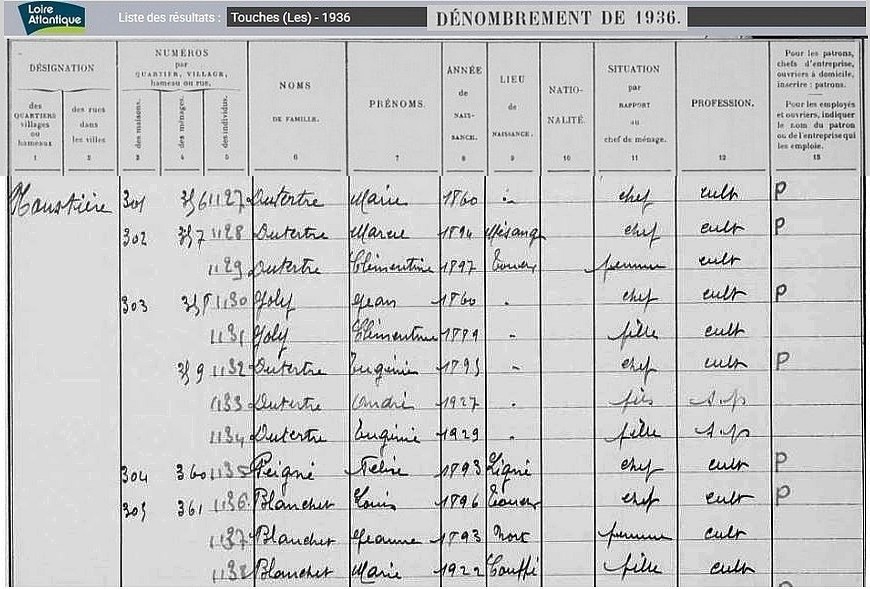 Loire Atlantique Liste des résultats : Touches (Les) - 1936 DÉNOMBREMENT DE 1936.
DÉSIGNATION
des QUARTIERS villages ou hameaux
1
des rues dans les villes
2
NUMÉROS par QUARTIER, VILLAGE, hameau ou rue.
des maisons.
3
des ménages.
4
des individus.
5
NOMS DE FAMILLE.
6
PRÉNOMS.
7
ANNÉE de NAIS- SANCE.
8
LIEU de NAISSANCE.
9
NATIO- NALITÉ.
10
SITUATION par RAPPORT au chef de ménage.
11
PROFESSION.
12
Pour les patrons, chefs d'entreprise, ouvriers à domicile, inscrire : patrons.
Pour les employés et ouvriers, indiquer le nom du patron ou de l'entreprise qui les emploie.
13
301 356 1127 Dutertre Marie 1860 chef cult P
302 357 1128 Dutertre Marcel 1894 Mésang chef cult P
1129 Dutertre Clémentine 1897 femme cult
303 358 1130 Joly Jean 1860 chef cult P
1131 Joly Clémentine 1889 fille cult
359 1132 Dutertre Eugénie 1895 chef cult P
1133 Dutertre André 1927 fils s.p
1134 Dutertre Eugénie 1929 fille s.p
304 360 1135 Peigné 1893 Ligné chef cult P
305 361 1136 Blanchet Louis 1896 chef cult P
1137 Blanchet Jeanne 1893 Nort femme cult
1138 Blanchet Marie 1922 Couffé fille cult